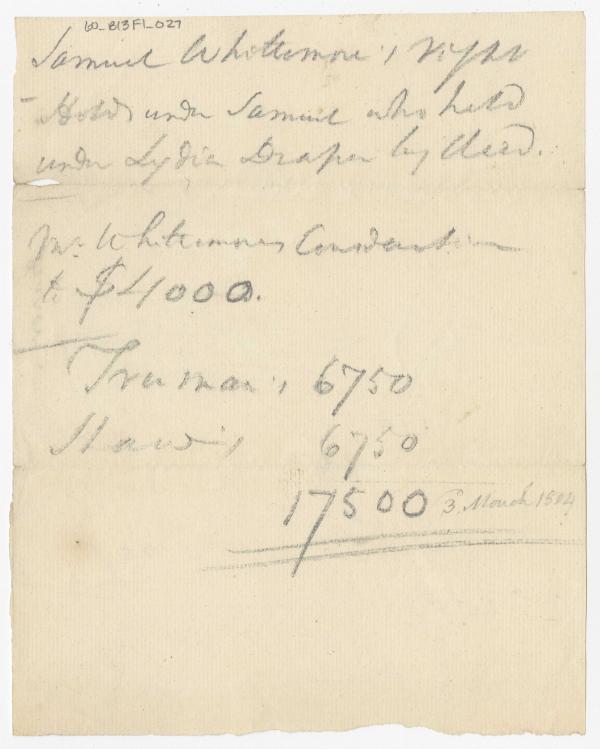 60_B13F1_027
Samuel Whittemore's right
Holds under Samuel who held
under Lydia Draper by deed.
Mr. Whittemores Consideration
to $4000.
Truman's 6750
Shaw's 6750
17500 3. March 1804